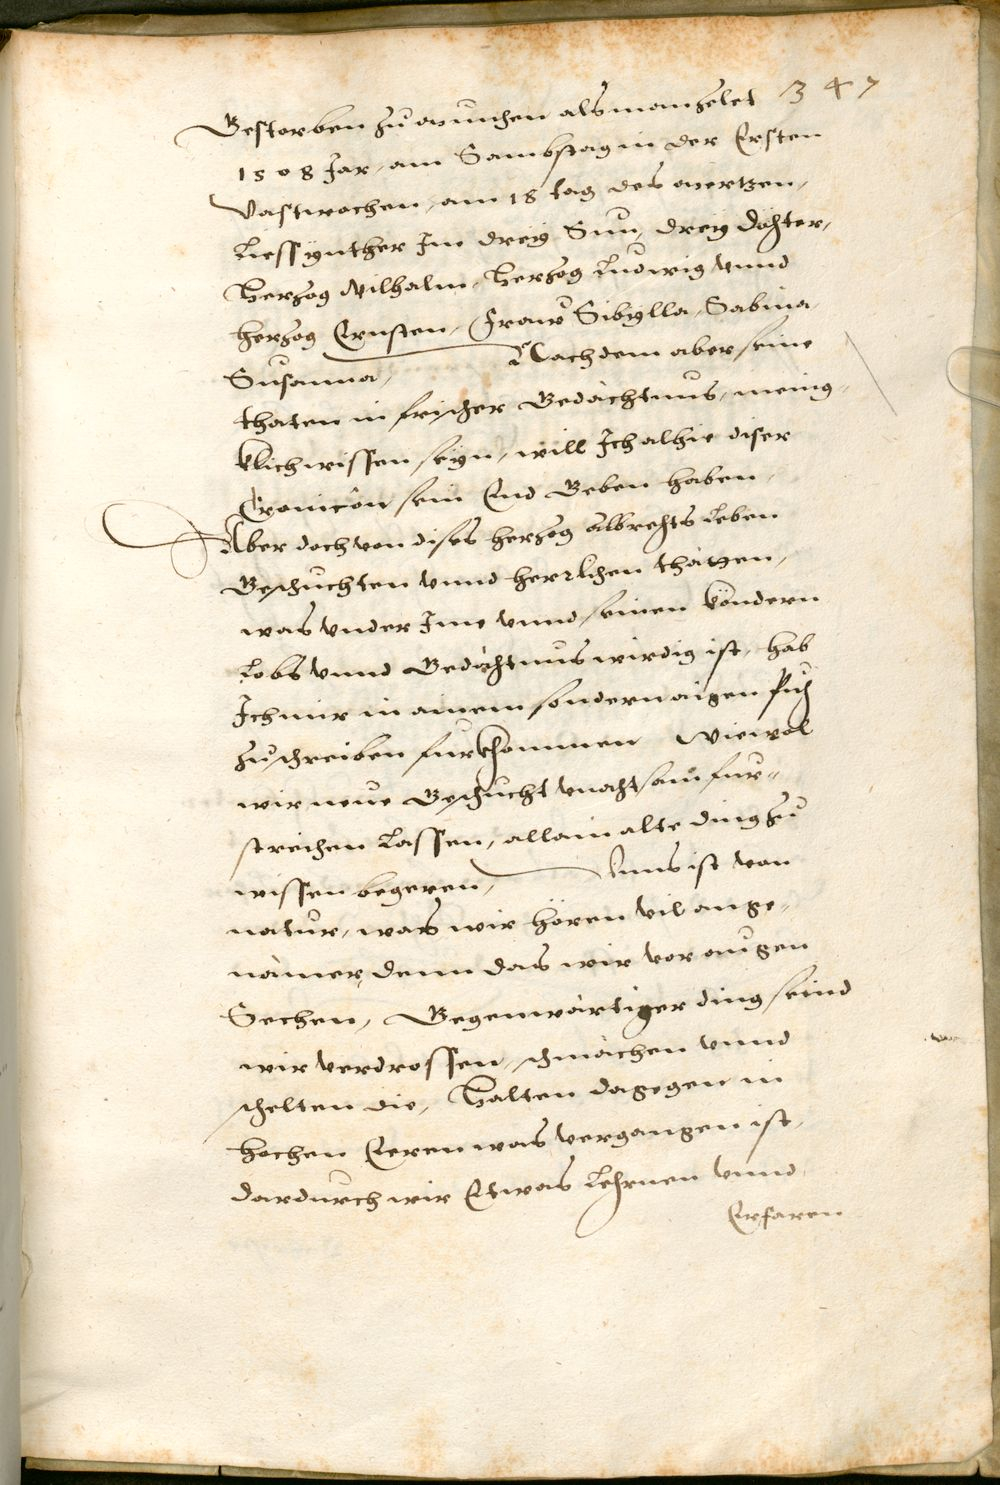 347
Gestorben zu Munchen als man zelet
1508 Jar, am Sambstag in der Ersten
Vastwochen, am 18 tag des Mertzen,
Liess hynther Ime dreÿ Sun, dreÿ döchter,
Herzog Wilhalm, Herzog Ludwig vnnd
herzog Ernsten, Fraw Sibÿlla, Sabina
Susanna, Nachdem aber seine
thaten in frischer Gedächtnus, menig,
klich wissen seÿn, will Ich alhie diser
Cronicon sein End Geben haben,
Aber doch von dises herzog Albrechts Leben
Geschichten vnnd herrlichen thatten,
was vnder Ime vnnd seinen kindern
Lobs vnnd Gedächtnus wirdig ist, hab
Ich mir in ainem sondern aigen Puch
zuschreiben furkhommen Wiewol
wir neue Geschicht vnachtsam fur-
streichen Lassen, allain alte ding zu
wissen begeren, Unns ist von
natur, was wir hören vil ange-
nämer, denn das wir vor augen
Sechen, Gegenwärtiger ding seind
wir verdrossen, schmächen vnnd
schelten die, Halten dagegen in
hochen Eeren was vergangen ist,
dardurch wir Etwas Lehrnen vnnd
Erfaren